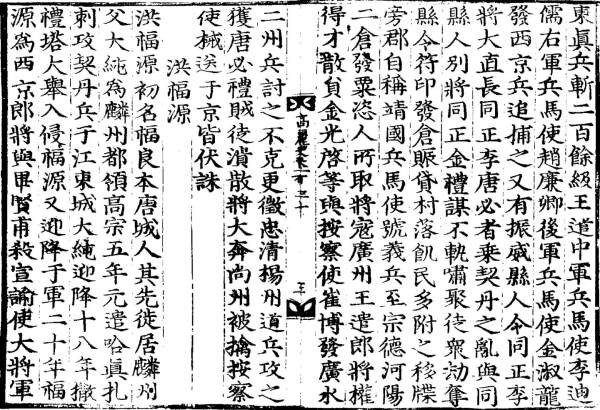 東眞兵斬二百餘級王道中軍兵馬使李迪
儒右軍兵馬使趙廉卿後軍兵馬使金淑龍
發西京兵追捕之又有振威縣人令同正李
將大直長同正李唐必者乘契丹之亂與同
縣人別將同正金禮謀不軌嘯聚徒衆劫奪
縣令符印發倉賑貸村落飢民多附之移牒
旁郡自稱靖國兵馬使號義兵至宗德河陽
二倉發粟恣人所取將寇廣州王遣郎將權
得才散員金光啓等與按察使崔博發廣水
高麗史卷一百三十
二州兵討之不克更徵忠清楊州道兵攻之
獲唐必禮賊徒潰散將大奔尚州被擒按察
使械送于京皆伏誅
洪福源
洪福源初名福良本唐城人其先徙居麟州
父大純爲麟州都領高宗五年元遣哈眞扎
刺攻契丹兵于江東城大純迎降十八年撒
禮塔大擧入侵福源又迎降于軍二十年福
源爲西京郎將與畢賢甫殺宣諭使大將軍